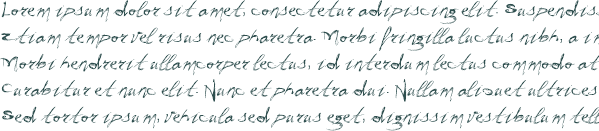 Lorem ipsum dolor sit amet, consectetur adipiscing elit. Suspendis
Etiam tempor vel risus nec pharetra. Morbi fringilla luctus nibh, a in
Morbi hendrerit ullamcorper lectus, id interdum lectus commodo at
Curabitur et nunc elit. Nunc et pharetra dui. Nullam aliquet ultrices
Sed tortor ipsum, vehicula sed purus eget, dignissim vestibulum tell